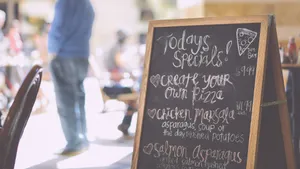 Todays
Specials!
Create your
own Pizza
$9.99
Chicken Marsala
asparagus, soup of
the day potatoes
Salmon asparagus